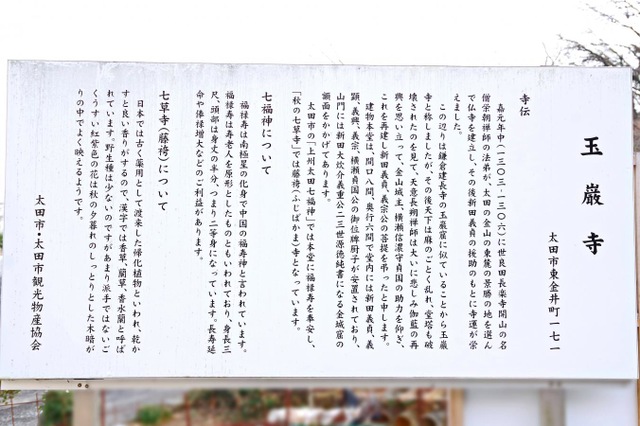 玉巖寺
太田市東金井町一七一
寺伝
嘉元年中(一三〇三-一三〇六)に世良田長楽寺開山の名
僧栄朝禅師の法弟が、太田の金山の東麓の景勝の地を選ん
で仏寺を建立し、その後新田義貞の援助のもとに寺運が栄
えました。
この辺りは鎌倉建長寺の玉巖窟に似ていることから玉巖
寺と称しましたが、その後天下は麻のごとく乱れ、堂塔も破
壊されたのを見て、天意長朔禅師は大いに悲しみ伽藍の再
興を思い立って、金山城主、横瀬信濃守貞国の助力を仰ぎ、
これを再建し新田義貞、義宗公の菩提を弔ったと申します。
建物本堂は、間口八間、奥行六間で堂内には新田義貞、義
顕、義興、義宗、横瀬貞国公の御位牌厨子が安置されており、
山門には新田大炊介義重公二三世源徳純書になる金城窟の
額面をかかげてあります。
太田市の「上州太田七福神」では本堂に福禄寿を奉安し、
「秋の七草寺」では藤袴(ふじばかま)寺となっています。
七福神について
福禄寿は南極星の化身で中国の福寿神と言われています。
福禄寿は寿老人を原形としたものともいわれており、身長三
尺、頭部は身丈の半分、つまり二等身になっています。長寿延
命や俸禄増大などのご利益があります。
七草寺(藤袴)について
日本では古く薬用として渡来した帰化植物といわれ、乾か
すと良い香りがするので、漢字では香草、蘭草、香水蘭と呼ば
れています。野生種は少ないのですがあまり派手ではないご
くうすい紅紫色の花は秋の夕暮れのしっとりとした木暗が
りの中でよく映えるようです。
太田市・太田市観光物産協会